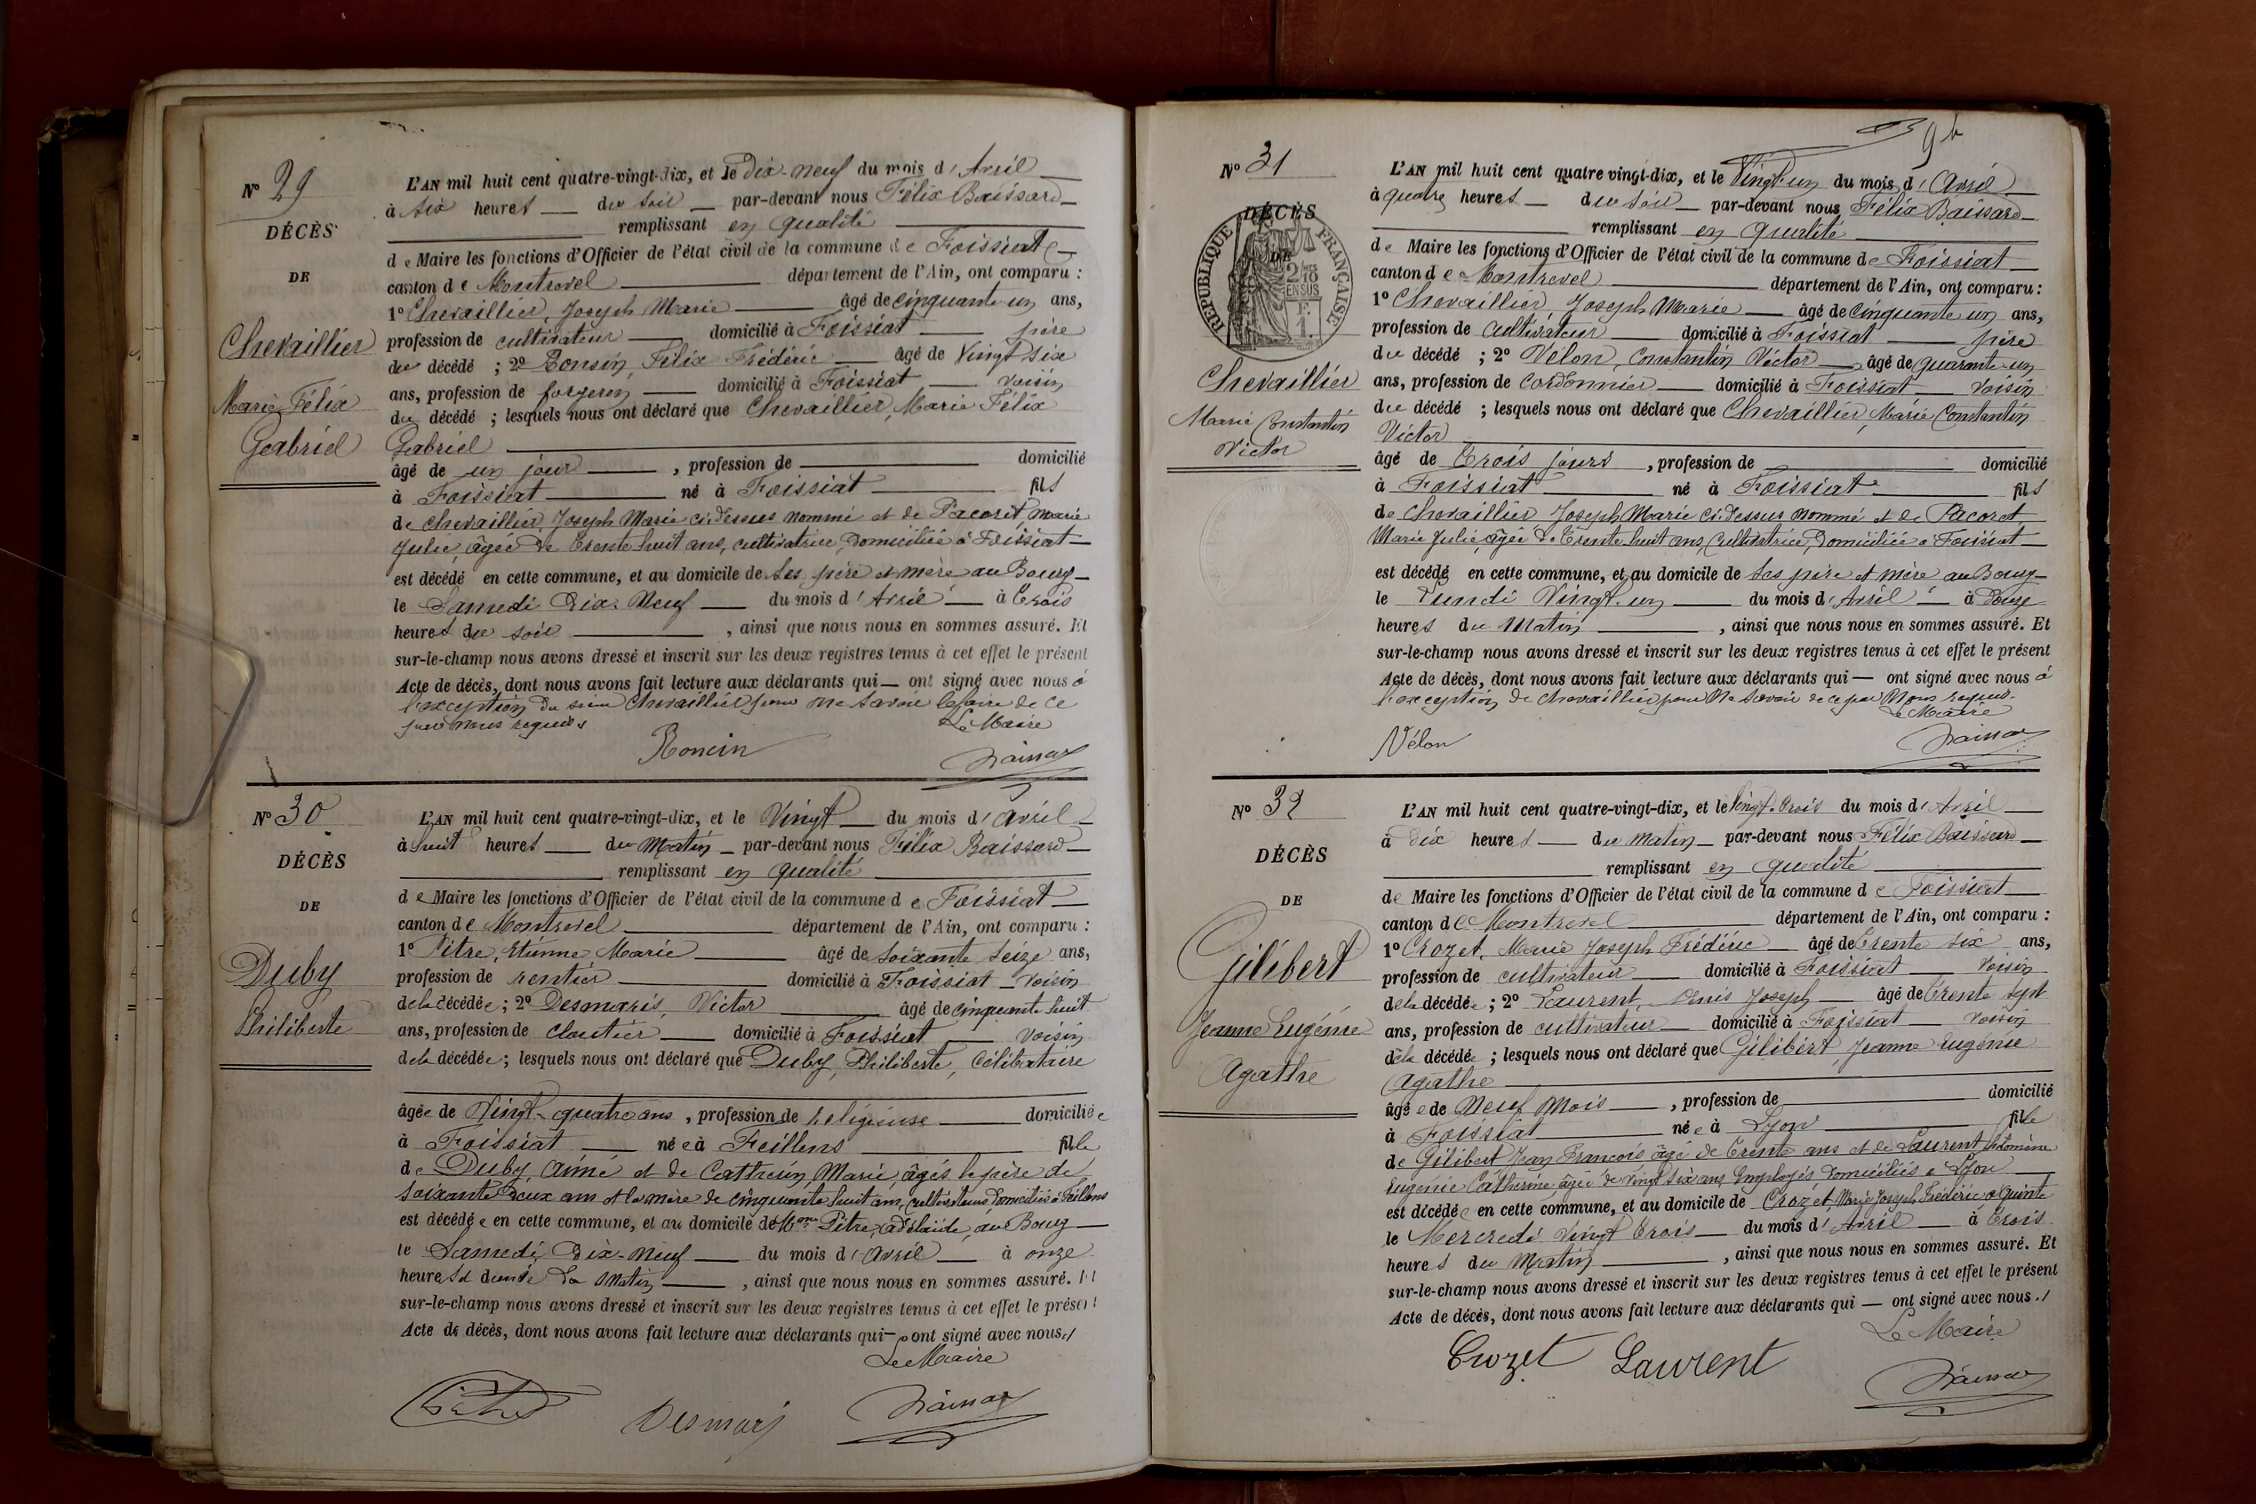 Nº 29
DÉCÈS
DE
Chevaillier
Marie Félix
Gabriel
L'AN mil huit cent quatre-vingt-dix, et le Dix-neuf du mois d'Avril
à six heures du soir par-devant nous Félix Baissard
remplissant en qualité
de Maire les fonctions d'Officier de l'état civil de la commune de Foissiat
canton de Montrevel département de l'Ain, ont comparu :
1º Chevaillier, Joseph Marie âgé de cinquante un ans,
profession de cultivateur domicilié à Foissiat père
du décédé ; 2º Roncin Félix Frédéric âgé de Vingt six
ans, profession de forgeron domicilié à Foissiat voisin
du décédé ; lesquels nous ont déclaré que Chevaillier, Marie Félix
Gabriel
âgé de un jour , profession de domicilié
à Foissiat né à Foissiat fils
de Chevaillier Joseph Marie ci-dessus nommé et de Pacoret Marie
Julie, âgée de trente huit ans, cultivatrice, domiciliée à Foissiat
est décédé en cette commune, et au domicile de ses père et mère au Bourg
le Samedi Dix-Neuf du mois d'Avril à trois
heures du soir , ainsi que nous nous en sommes assuré. Et
sur-le-champ nous avons dressé et inscrit sur les deux registres tenus à cet effet le présent
Acte de décès, dont nous avons fait lecture aux déclarants qui ont signé avec nous à
l'exception du sieur Chevaillier pour ne savoir le faire de ce
par nous requis
Le Maire
Roncin
Nº 30
DÉCÈS
DE
Duby
Philiberte
L'AN mil huit cent quatre-vingt-dix, et le Vingt du mois d'avril
à huit heures du Matin par-devant nous Félix Baissard
remplissant en qualité
de Maire les fonctions d'Officier de l'état civil de la commune de Foissiat
canton de Montrevel département de l'Ain, ont comparu :
1º Pitre, Etienne Marie âgé de soixante seize ans,
profession de rentier domicilié à Foissiat voisin
de la décédée ; 2º Desmaris, Victor âgé de cinquante huit
ans, profession de cloutier domicilié à Foissiat voisin
de la décédée ; lesquels nous ont déclaré que Duby, Philiberte, célibataire
âgée de Vingt-quatre ans , profession de religieuse domiciliée
à Foissiat née à Feillens fille
de Duby, Aimé et de Catherin, Marie, âgés le père de
soixante deux ans et la mère de cinquante huit ans, cultivateurs domiciliés à Feillens
est décédée en cette commune, et au domicile de Mme Pitre, adélaïde, au Bourg
le Samedi Dix-Neuf du mois d'avril à onze
heures et demie du matin , ainsi que nous nous en sommes assuré. Et
sur-le-champ nous avons dressé et inscrit sur les deux registres tenus à cet effet le présent
Acte de décès, dont nous avons fait lecture aux déclarants qui ont signé avec nous
Le Maire
Desmaris
Nº 31
DÉCÈS
DE
RÉPUBLIQUE FRANÇAISE
2/10es
EN SUS
F.
1.
Chevaillier
Marie Constantin
Victor
L'AN mil huit cent quatre vingt-dix, et le Vingt un du mois d'Avril
à quatre heures du soir par-devant nous Félix Baissard
remplissant en qualité
de Maire les fonctions d'Officier de l'état civil de la commune de Foissiat
canton de Montrevel département de l'Ain, ont comparu :
1º Chevaillier Joseph Marie âgé de cinquante un ans,
profession de cultivateur domicilié à Foissiat père
du décédé ; 2º Vélon, Constantin Victor âgé de quarante un
ans, profession de cordonnier domicilié à Foissiat voisin
du décédé ; lesquels nous ont déclaré que Chevaillier, Marie Constantin
Victor
âgé de trois jours , profession de domicilié
à Foissiat né à Foissiat fils
de Chevaillier Joseph Marie ci-dessus nommé et de Pacoret
Marie Julie, âgée de trente huit ans, cultivatrice, domiciliée à Foissiat
est décédé en cette commune, et au domicile de ses père et mère au Bourg
le Lundi Vingt-un du mois d'Avril à douze
heures du Matin , ainsi que nous nous en sommes assuré. Et
sur-le-champ nous avons dressé et inscrit sur les deux registres tenus à cet effet le présent
Acte de décès, dont nous avons fait lecture aux déclarants qui ont signé avec nous à
l'exception de Chevaillier pour ne savoir de ce par Nous requis
Le Maire
Vélon
Nº 32
DÉCÈS
DE
Gilibert
Jeanne Eugénie
Agathe
L'AN mil huit cent quatre-vingt-dix, et le Vingt-trois du mois d'Avril
à dix heures du matin par-devant nous Félix Baissard
remplissant en qualité
de Maire les fonctions d'Officier de l'état civil de la commune de Foissiat
canton de Montrevel département de l'Ain, ont comparu :
1º Crozet, Marie Joseph Frédéric âgé de trente six ans,
profession de cultivateur domicilié à Foissiat voisin
de la décédée ; 2º Laurent, Denis Joseph âgé de trente sept
ans, profession de cultivateur domicilié à Foissiat voisin
de la décédée ; lesquels nous ont déclaré que Gilibert, Jeanne Eugénie
Agathe
âgée de Neuf Mois , profession de domicilié
à Foissiat née à Lyon fille
de Gilibert Jean François âgé de trente ans et de Laurent
Eugénie Catherine âgée de vingt six ans Employés domiciliés à Lyon
est décédée en cette commune, et au domicile de Crozet, Marie Joseph Frédéric à Quinte
le Mercredi Vingt trois du mois d'Avril à trois
heures du Matin , ainsi que nous nous en sommes assuré. Et
sur-le-champ nous avons dressé et inscrit sur les deux registres tenus à cet effet le présent
Acte de décès, dont nous avons fait lecture aux déclarants qui ont signé avec nous
Le Maire
Crozet Laurent